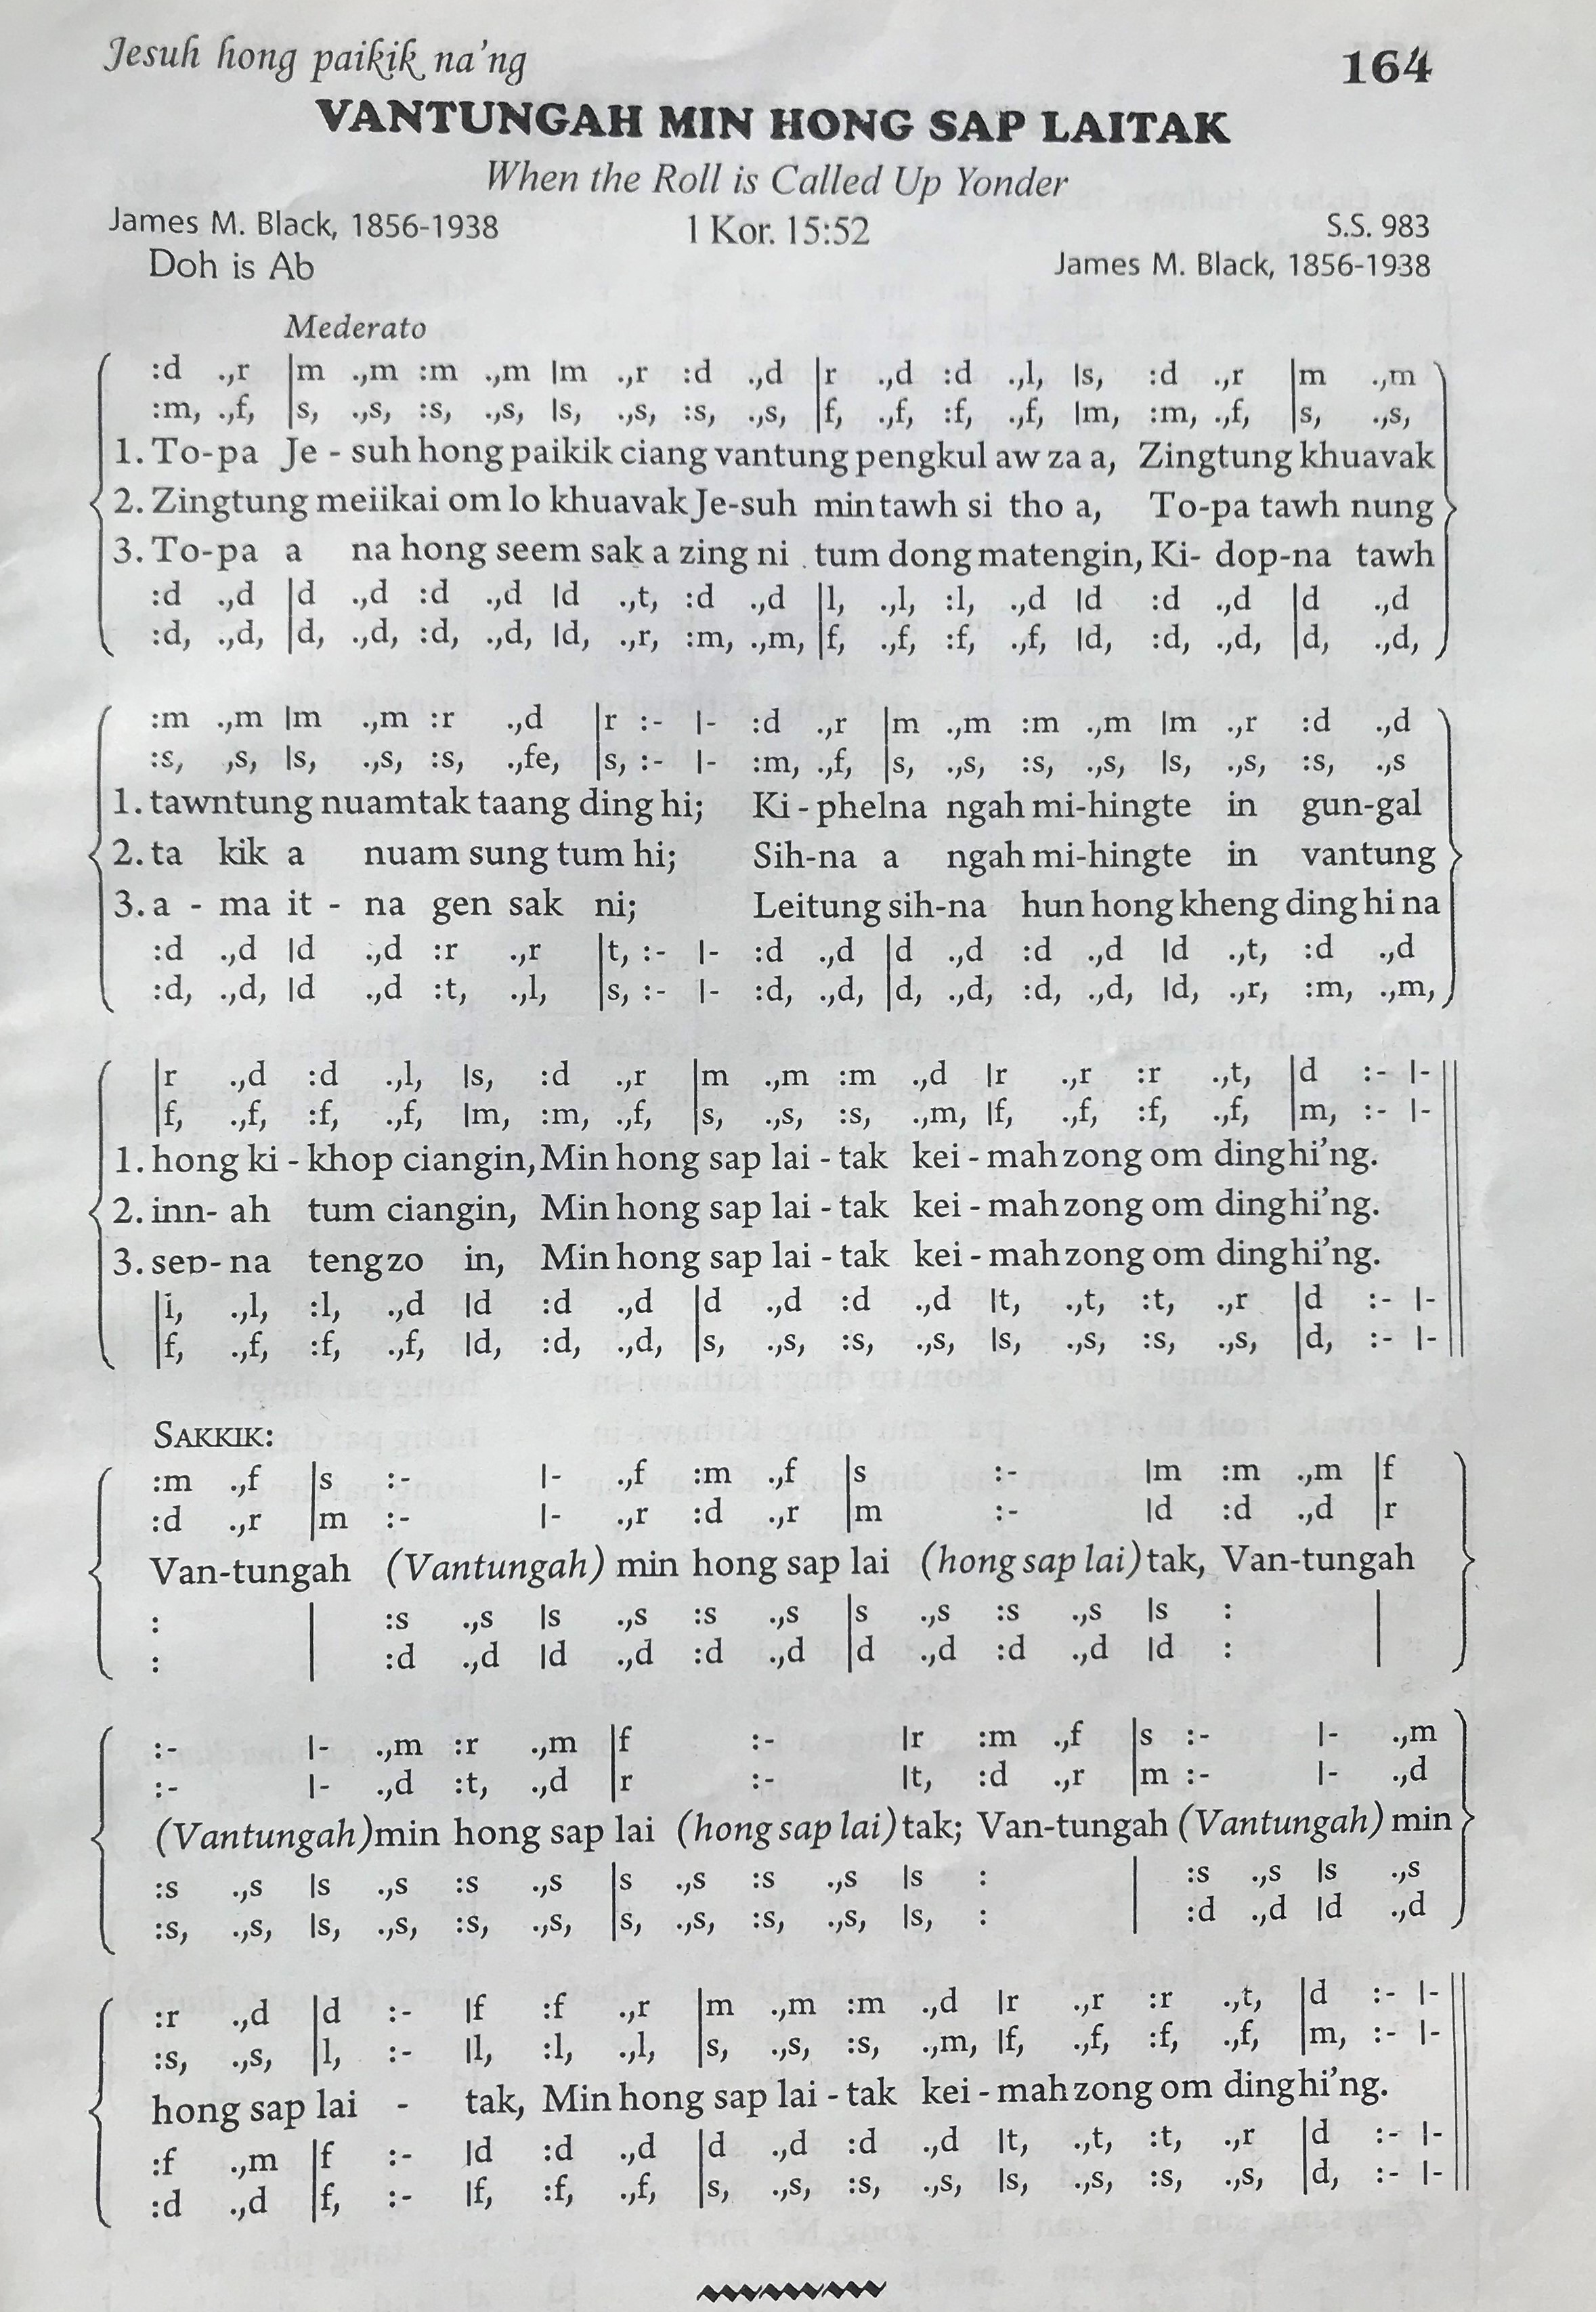 Jesuh hong paikik na'ng
164
VANTUNGAH MIN HONG SAP LAITAK
When the Roll is Called Up Yonder
James M. Black, 1856-1938 1 Kor. 15:52 S.S. 983
Doh is Ab James M. Black, 1856-1938
Mederato
:d .,r |m .,m :m .,m |m .,r :d .,d |r .,d :d .,l, |s, :d .,r |m .,m
:m, .,f, |s, .,s, :s, .,s, |s, .,s, :s, .,s, |f, .,f, :f, .,f, |m, :m, .,f, |s, .,s,
1. To-pa Je - suh hong paikik ciang vantung pengkul aw za a, Zingtung khuavak
2. Zingtung meiikai om lo khuavak Je-suh min tawh si tho a, To-pa tawh nung
3. To-pa a na hong seem sak a zing ni tum dong matengin, Ki- dop-na tawh
:d .,d |d .,d :d .,d |d .,t, :d .,d |l, .,l, :l, .,d |d :d .,d |d .,d
:d, .,d, |d, .,d, :d, .,d, |d, .,r, :m, .,m, |f, .,f, :f, .,f, |d, :d, .,d, |d, .,d,
:m .,m |m .,m :r .,d |r :- |- :d .,r |m .,m :m .,m |m .,r :d .,d
:s, ,s, |s, .,s, :s, .,fe, |s, :- |- :m, .,f, |s, .,s, :s, .,s, |s, .,s, :s, .,s
1. tawntung nuamtak taang ding hi; Ki - phelna ngah mi-hingte in gun-gal
2. ta kik a nuam sung tum hi; Sih-na a ngah mi-hingte in vantung
3. a - ma it - na gen sak ni; Leitung sih-na hun hong kheng ding hi na
:d .,d |d .,d :r .,r |t, :- |- :d .,d |d .,d :d .,d |d .,t, :d .,d
:d, .,d, |d .,d :t, .,l, |s, :- |- :d, .,d, |d, .,d, :d, .,d, |d, .,r, :m, .,m,
|r .,d :d .,l, |s, :d .,r |m .,m :m .,d |r .,r :r .,t, |d :- |-
|f, .,f, :f, .,f, |m, :m, .,f, |s, .,s, :s, .,m, |f, .,f, :f, .,f, |m, :- |-
1. hong ki - khop ciangin, Min hong sap lai - tak kei - mah zong om ding hi'ng.
2. inn- ah tum ciangin, Min hong sap lai - tak kei - mah zong om ding hi'ng.
3. sep- na teng zo in, Min hong sap lai - tak kei - mah zong om ding hi'ng.
|i, .,l, :l, .,d |d :d .,d |d .,d :d .,d |t, .,t, :t, .,r |d :- |-
|f, .,f, :f, .,f, |d, :d, .,d, |s, .,s, :s, .,s, |s, .,s, :s, .,s, |d, :- |-
SAKKIK:
:m .,f |s :- |- .,f :m .,f |s :- |m :m .,m |f
:d .,r |m :- |- .,r :d .,r |m :- |d :d .,d |r
Van-tungah (Vantungah) min hong sap lai (hong sap lai) tak, Van-tungah
: | :s .,s |s .,s :s .,s |s .,s :s .,s |s : |
: | :d .,d |d .,d :d .,d |d .,d :d .,d |d : |
:- |- .,m :r .,m |f :- |r :m .,f |s :- |- .,m
:- |- .,d :t, .,d |r :- |t, :d .,r |m :- |- .,d
(Vantungah) min hong sap lai (hong sap lai) tak; Van-tungah (Vantungah) min
:s .,s |s .,s :s .,s |s .,s :s .,s |s : | :s .,s |s .,s
:s, .,s, |s, .,s, :s, .,s, |s, .,s, :s, .,s, |s, : | :d .,d |d .,d
:r .,d |d :- |f :f .,r |m .,m :m .,d |r .,r :r .,t, |d :- |-
:s, .,s, |l, :- |l, :l, .,l, |s, .,s, :s, .,m, |f, .,f, :f, .,f, |m, :- |-
hong sap lai - tak, Min hong sap lai - tak kei - mah zong om ding hi'ng.
:f .,m |f :- |d :d .,d |d .,d :d .,d |t, .,t, :t, .,r |d :- |-
:d .,d |f, :- |f, :f, .,f, |s, .,s, :s, .,s, |s, .,s, :s, .,s, |d, :- |-